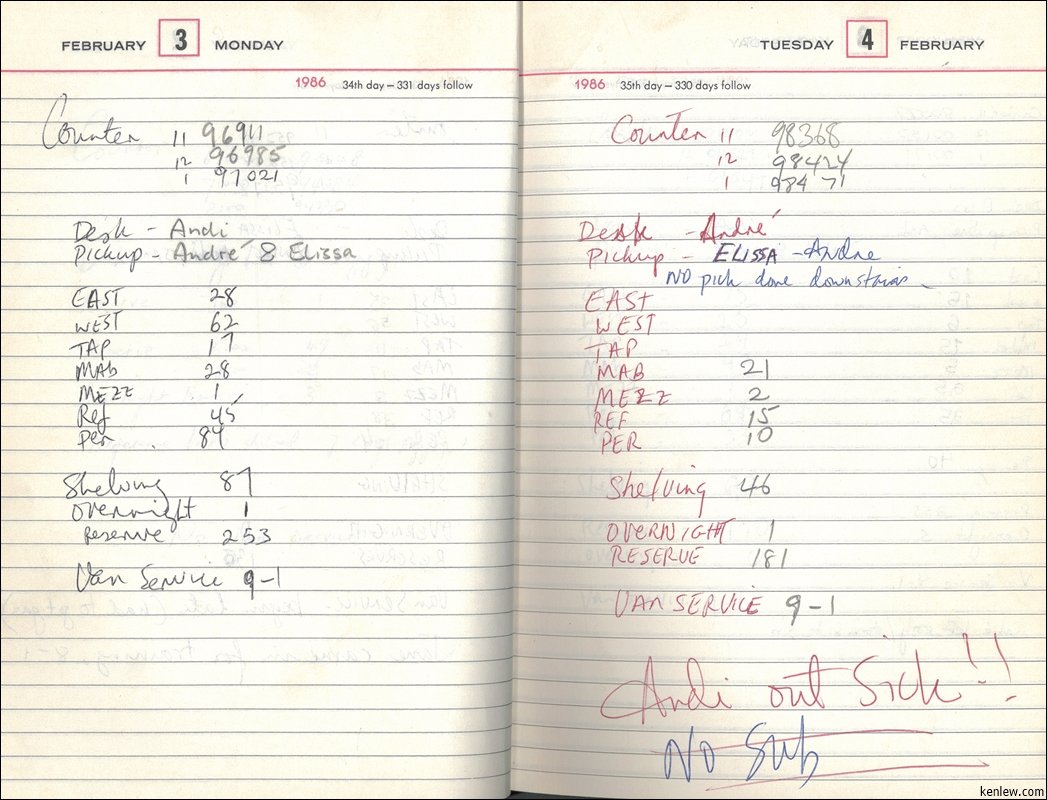 FEBRUARY 3 MONDAY
1986 34th day – 331 days follow
Counter 11 96911
12 96985
1 97021
Desk - Andi
Pickup - André & Elissa
EAST 28
WEST 62
TAP 17
MAB 28
MEZZ 1
Ref 45
Per. 84
Shelving 87
overnight 1
Reserve 253
Van Service 9-1
TUESDAY 4 FEBRUARY
1986 35th day – 330 days follow
Counter 11 98368
12 98424
1 98471
Desk - André
Pickup - ELISSA - Andre
NO pick done downstairs
EAST
WEST
TAP
MAB 21
MEZZ 2
REF 15
PER 10
Shelving 46
OVERNIGHT 1
RESERVE 181
VAN SERVICE 9-1
Andi out Sick!!
NO Sub
kenlew.com